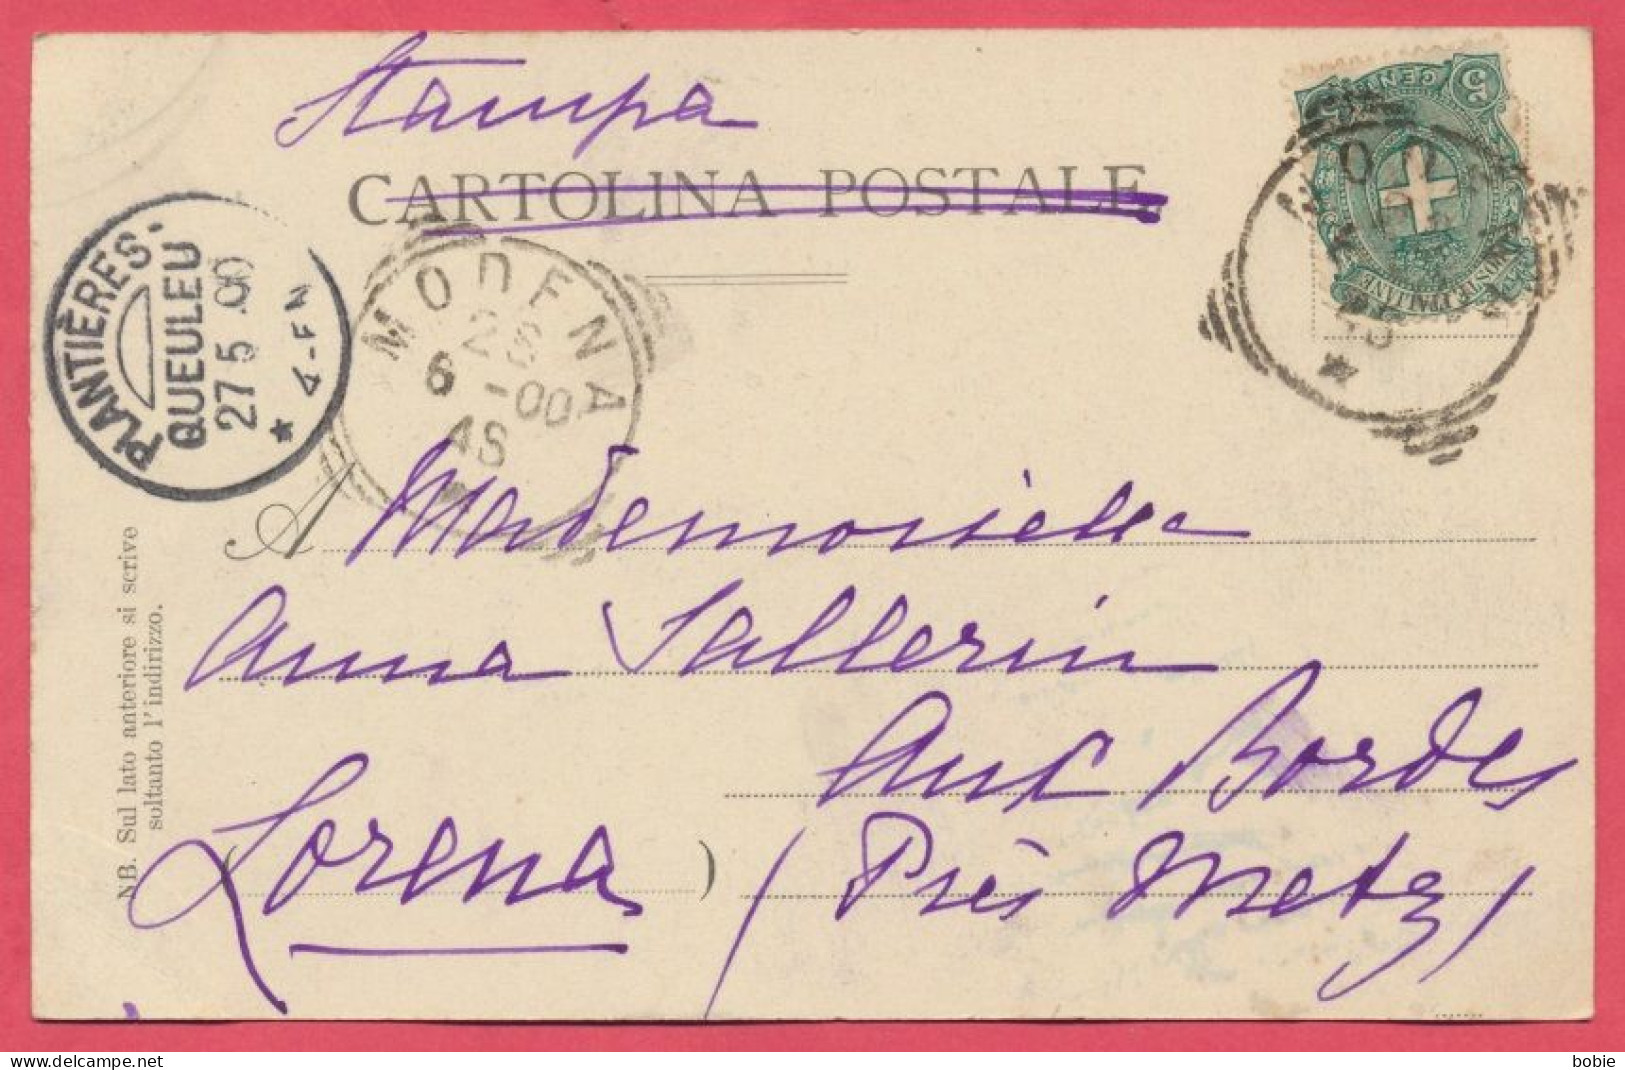 Stampa
CARTOLINA POSTALE
5 CEN
POSTE ITALIANE
PLANTIÈRES-
QUEULEU
27 5 .00
* 4-5N
MODENA
6
-00
4S
A Mademoiselle
Anna Sallerin
Aux Bordes
Lorena (Près Metz)
NB. Sul lato anteriore si scrive
soltanto l'indirizzo.
bobie